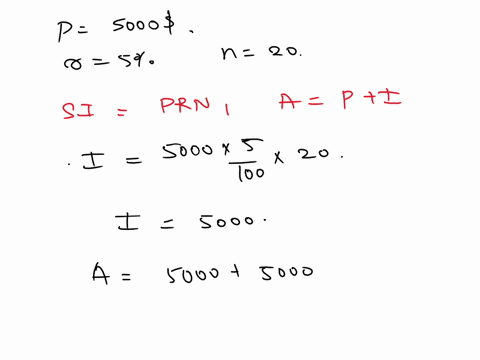 P = 5000$.
r = 5%. n = 20.
SI = PRN, A = P + I
. I = 5000 × 5/100 × 20.
I = 5000.
A = 5000 + 5000